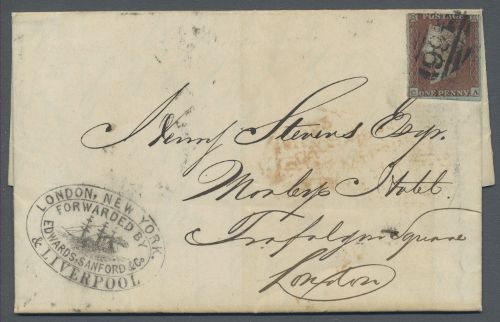 POSTAGE
466
C ONE PENNY. A
Henry Stevens Esqr.
Morleys Hotel.
Trafalgar Square
London
LONDON, NEW YORK,
FORWARDED BY
EDWARDS, SANFORD & Co
& LIVERPOOL